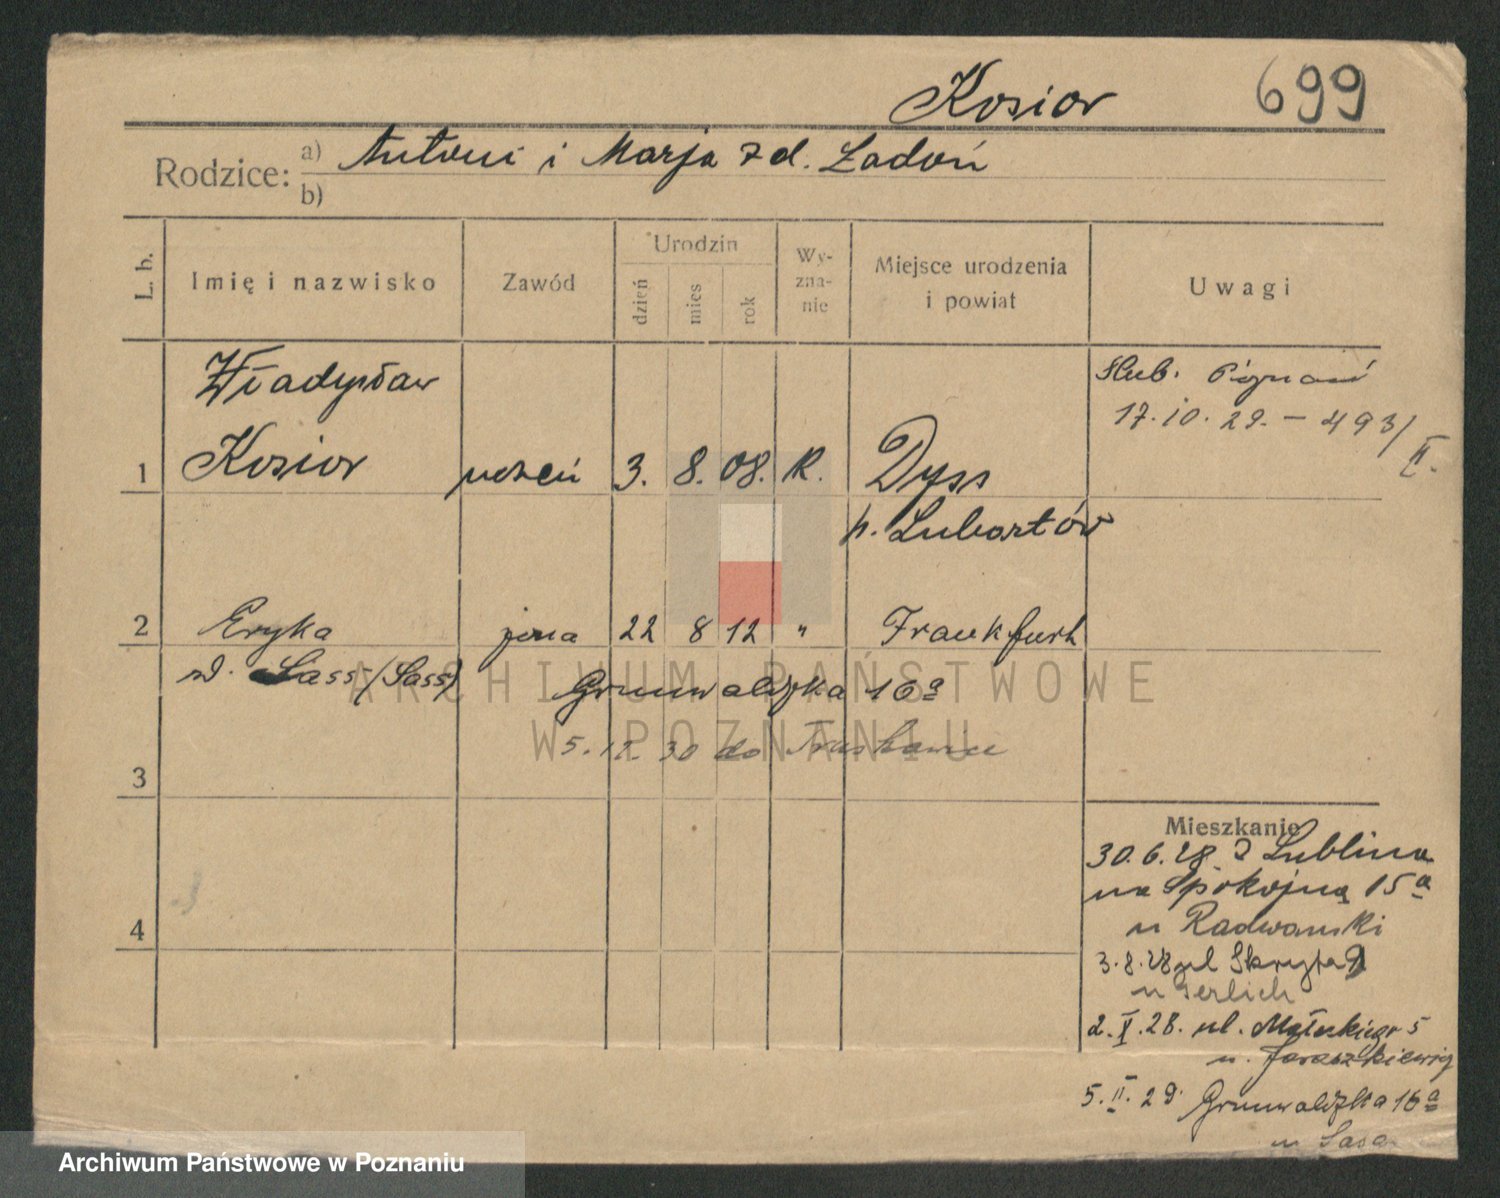 Kosior
699
Rodzice: a) Antoni i Marja z d. Ładoń
b)
L. b.
Imię i nazwisko
Zawód
Urodzin
dzień
mies
rok
Wy-
zna-
nie
Miejsce urodzenia
i powiat
Uwagi
Władysław
1 Kosior uczeń 3. 8. 08. R. Dyss
p. Lubartów
Ślub. Poznań
17.10.29. – 493/II.
2 Eryka żona 22 8 12 " Frankfurt
z d. Sass (Sass)
Grunwaldzka 16a
5.12.30 do
3
4
Mieszkanie
30.6.28. z Lublina
na Spokojną 15a
u Radwański
3.8.28 ul Skryta
u Gerlich
2.X.28. ul. Małeckiego 5
u. Jaraszkiewicz
5.II.29. Grunwaldzka 16a
u Sasa
ARCHIWUM PAŃSTWOWE
W POZNANIU
Archiwum Państwowe w Poznaniu